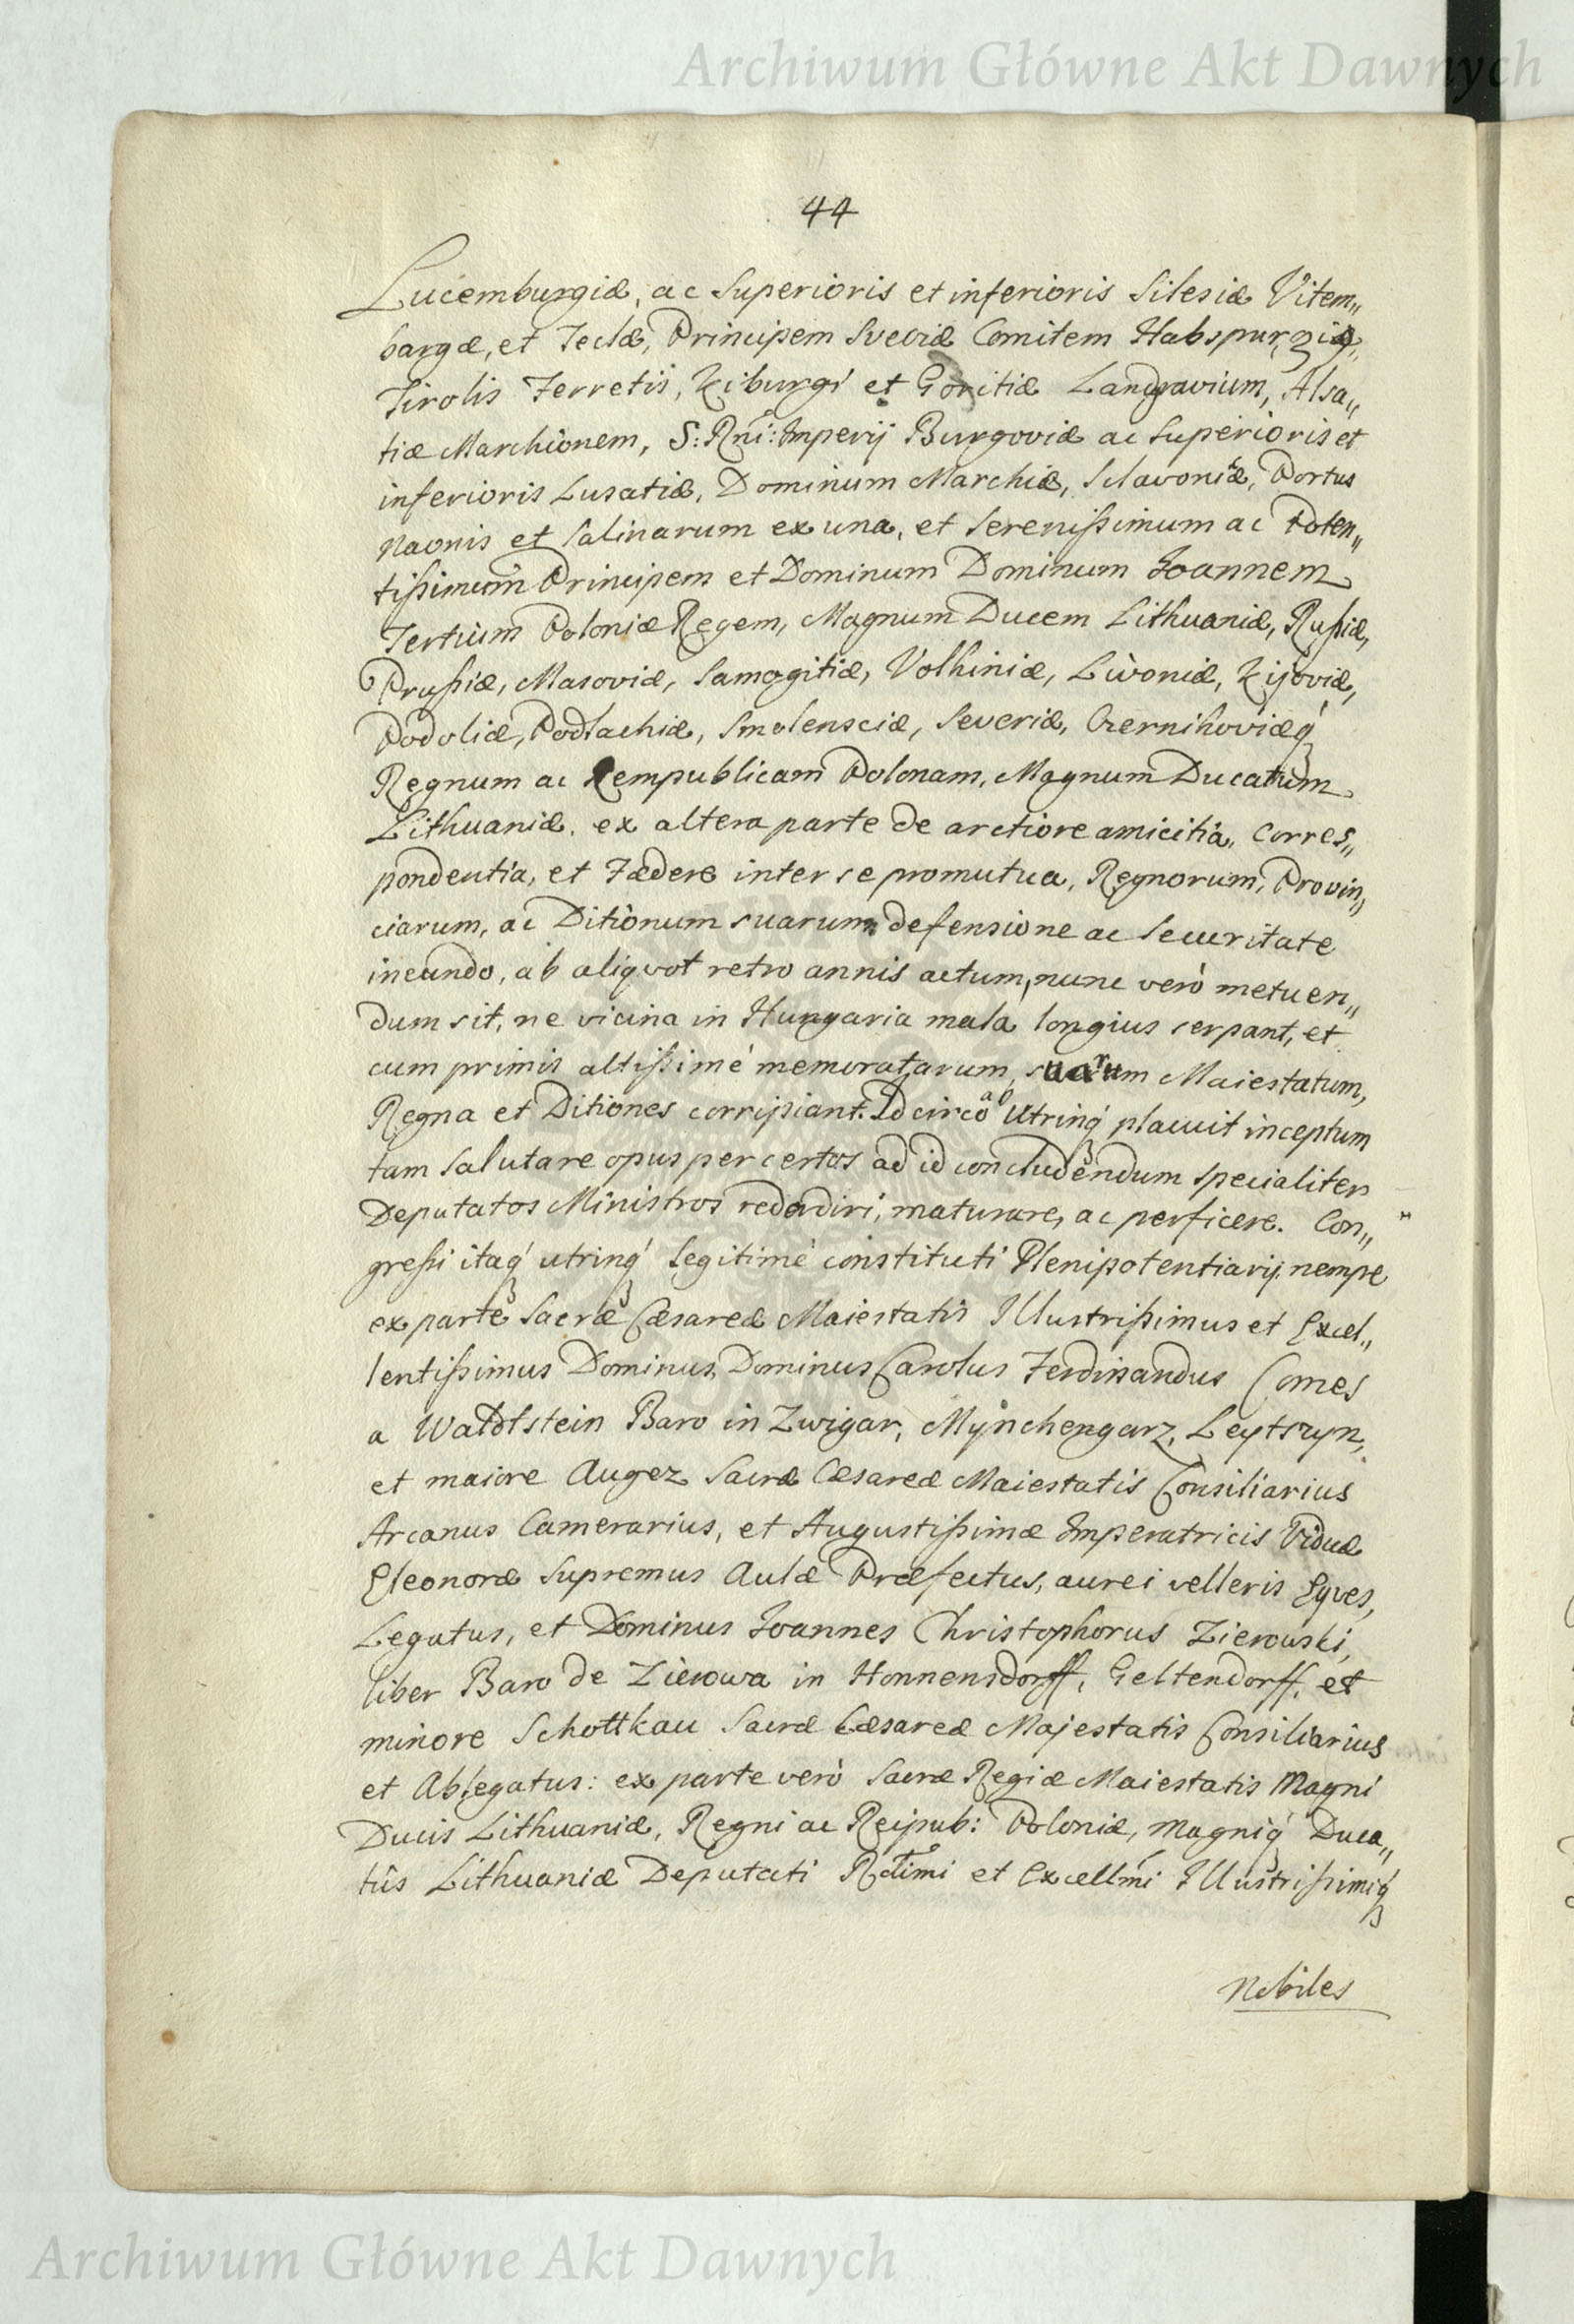 Archiwum Główne Akt Dawnych
44
Lucemburgiæ, ac Superioris et inferioris Silesiæ Vitem„
bargæ, et Teclæ, Principem Sveviæ Comitem Habspurgiæ,
Tirolis Ferretis, Kiburgi et Goritiæ Landgravium, Alsa„
tiæ Marchionem, S: Rni: Imperij Burgoviæ ac Superioris et
inferioris Lusatiæ, Dominum Marchiæ, Sclavoniæ, Portus
Naonis et Salinarum ex una, et Serenissimum ac Poten„
tissimum Principem et Dominum Dominum Joannem
Tertium Poloniæ Regem, Magnum Ducem Lithuaniæ, Russiæ,
Prussiæ, Masoviæ, Samogitiæ, Volhiniæ, Livoniæ, Kijoviæ,
Podoliæ, Podlachiæ, Smolensciæ, Severiæ, Czernihoviæq́
Regnum ac Rempublicam Polonam, Magnum Ducatum
Lithuaniæ. ex altera parte de arctiore amicitia, corres„
pondentia, et Fædere inter se promutua, Regnorum, Provin„
ciarum, ac Ditionum suarum defensione ac Securitate
ineundo, ab aliqvot retro annis actum, nunc verò metuen„
dum sit, ne vicina in Hungaria mala longius serpant, et
cum primis altissimè memoratarum, suarum Maiestatum,
Regna et Ditiones corripiant. Idcirco ab Utrinq́ placuit inceptum
tam Salutare opus per certos ad id concludendum specialiter
Deputatos Ministros redordiri, maturare, ac perficere. Con„
gressi itaq́ utrinq́ legitimè constituti Plenipotentiarij nempe
ex parte Sacræ Cæsareæ Maiestatis Illustrissimus et Excel„
lentissimus Dominus Dominus Carolus Ferdinandus Comes
a Waldtstein Baro in Zwigar, Mynchengarz, Leytszyn,
et maiore Augez Sacræ Cæsareæ Maiestatis Consiliarius
Arcanus Camerarius, et Augustissimæ Imperatricis Viduæ
Eleonoræ Supremus Aulæ Præfectus, aurei velleris Eqves,
Legatus, et Dominus Joannes Christophorus Zierowski,
liber Baro de Zierowa in Honnensdorff, Geltendorff, et
minore Schottkau Sacræ Cæsareæ Majestatis Consiliarius
et Ablegatus: ex parte verò Sacræ Regiæ Maiestatis Magni
Ducis Lithuaniæ, Regni ac Reipub: Poloniæ, Magniq́ Duca„
tûs Lithuaniæ Deputati Rdimi et Excellmi Illustrissimiq́
Nobiles
Archiwum Główne Akt Dawnych